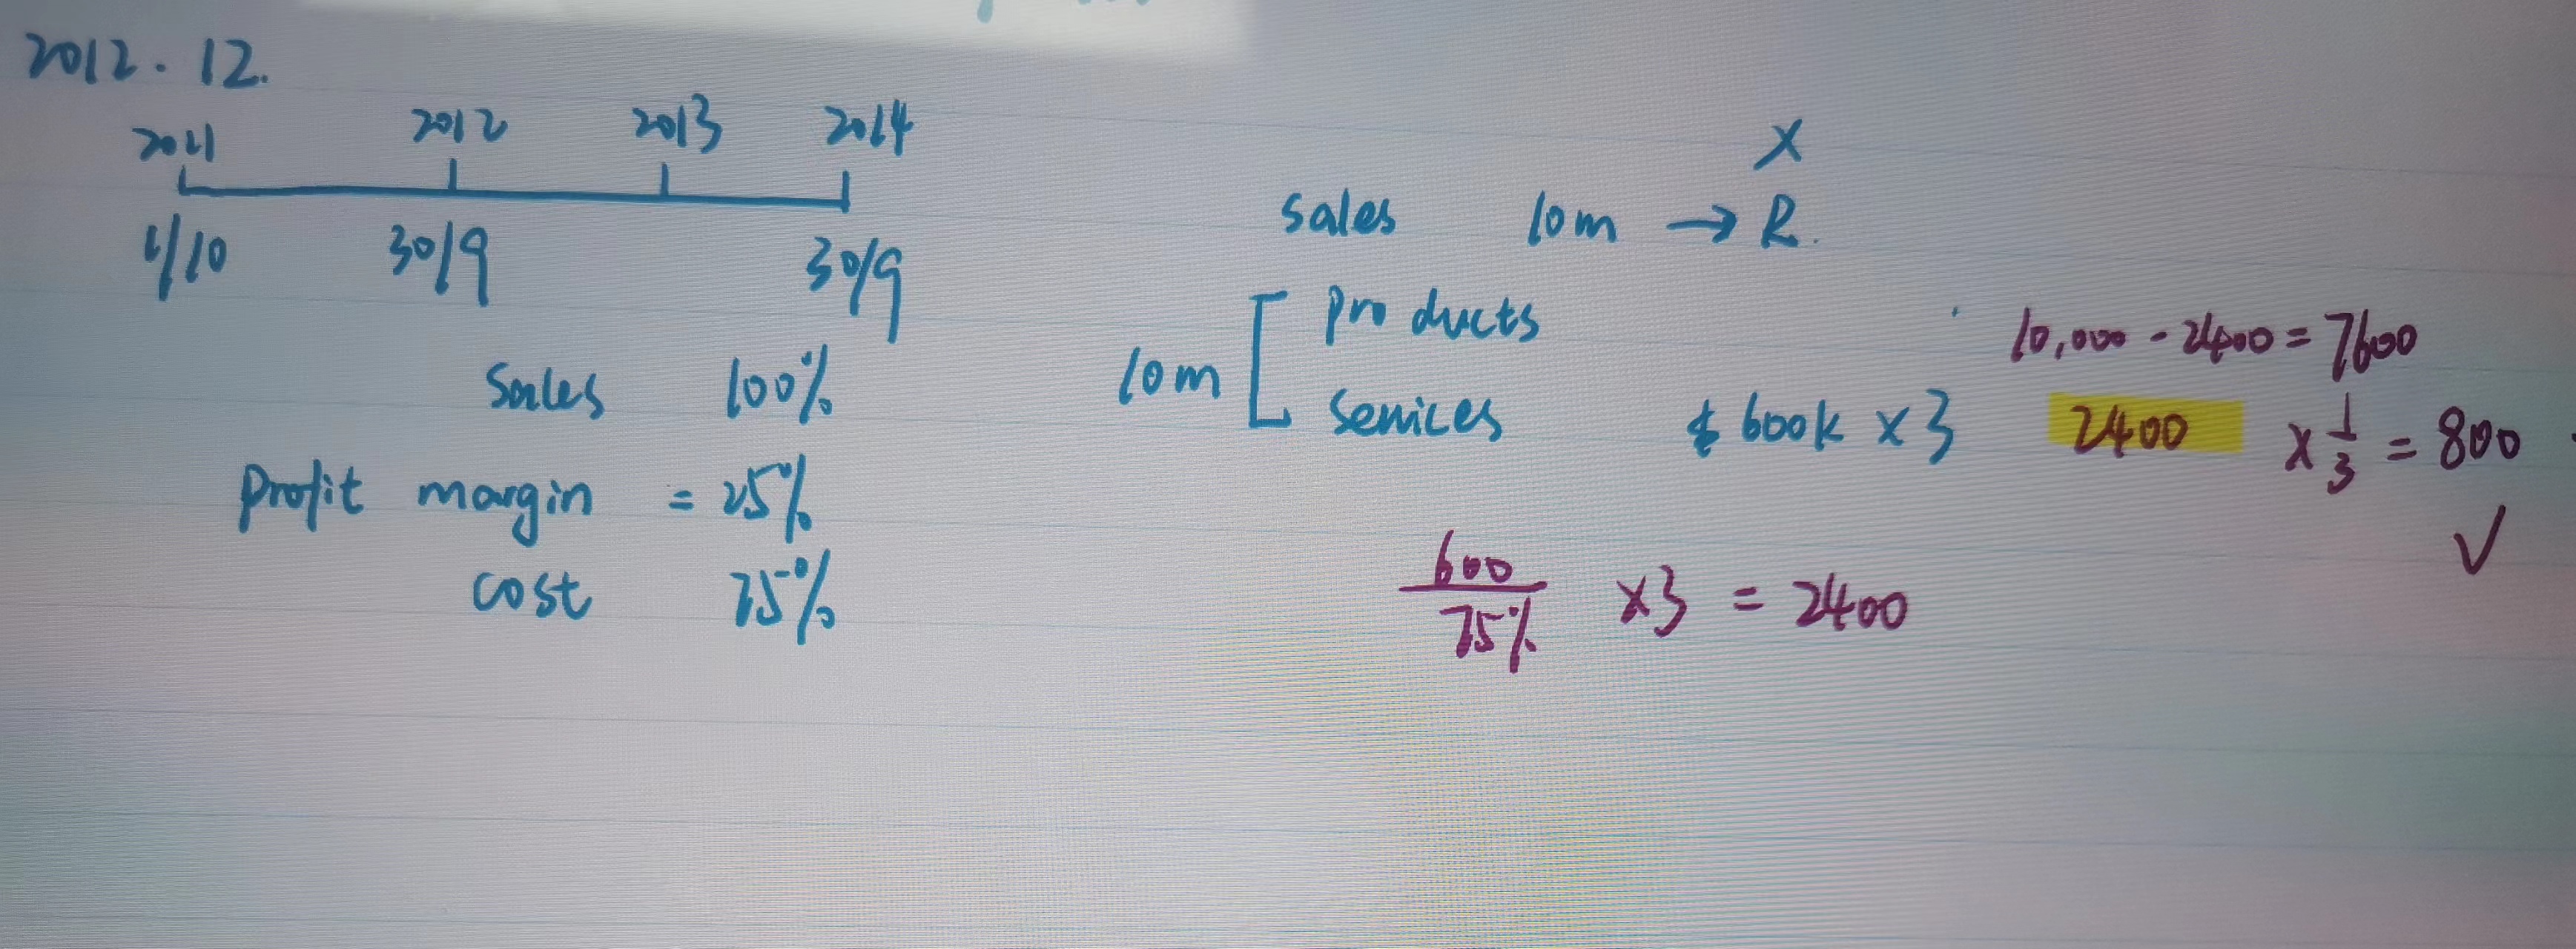 2012.12.
2011 2012 2013 2014
1/10 30/9 30/9
Sales 100%
Profit margin = 25%
cost 75%
X
sales 10m → R.
10m [ products
services $ 600k × 3
10,000 - 2400 = 7600
2400 × 1/3 = 800
✓
600/75% ×3 = 2400